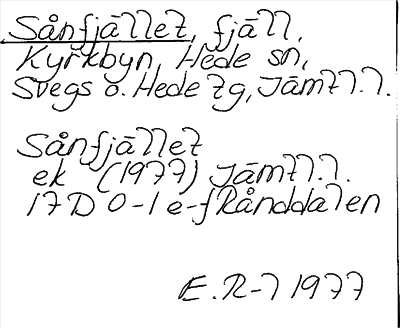 Sånfjället, fjäll.
Kyrkbyn, Hede sn,
Svegs o. Hede tg, Jämtl. l.
Sånfjället
ek (1977) Jämtl. l.
17D 0-1 e-f Rånddalen
E.R-l 1977